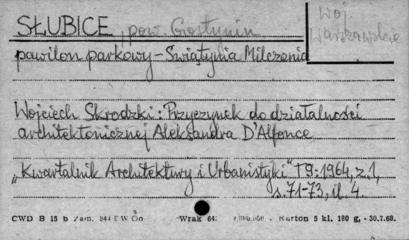 SŁUBICE, pow. Gostynin
woj.
Warszawskie
pawilon parkowy - Świątynia Milczenia
Wojciech Skrodzki: Przyczynek do działalności
architektonicznej Aleksandra D'Alfonce
„Kwartalnik Architektury i Urbanistyki" T9:1964, z.1,
s.71-73, il. 4.
CWD B 15 b Zam. Wrak Karton 5 kl. 180 g, - 30.7.68.